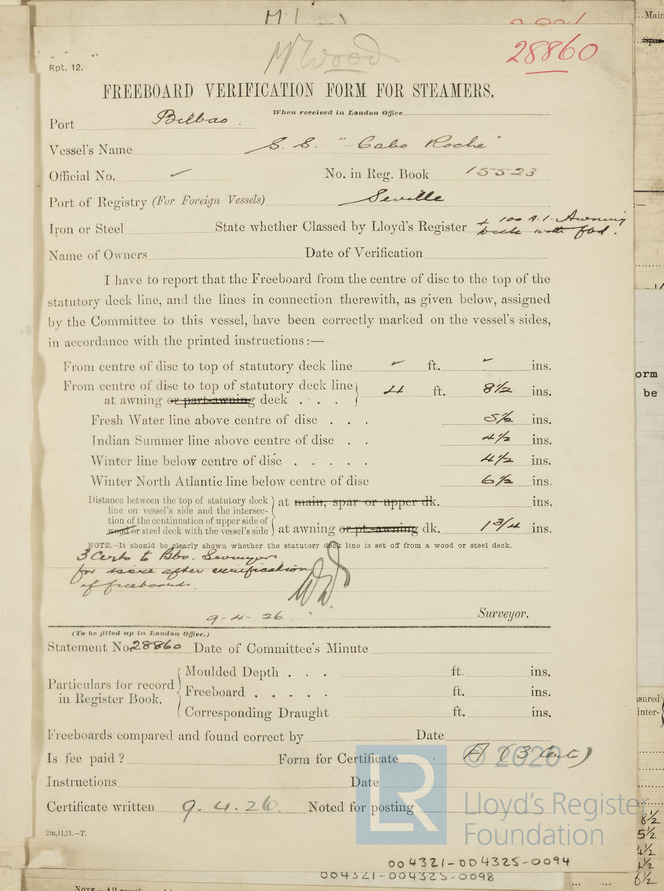 28860
Rpt. 12.
Wood
FREEBOARD VERIFICATION FORM FOR STEAMERS.
When received in London Office
Port Bilbao.
Vessel's Name S.S. "Cabo Roche"
Official No. ✓ No. in Reg. Book 15523
Port of Registry (For Foreign Vessels) Seville
Iron or Steel State whether Classed by Lloyd's Register + 100 A.1. Awning
Deck with fbd.
Name of Owners Date of Verification
I have to report that the Freeboard from the centre of disc to the top of the
statutory deck line, and the lines in connection therewith, as given below, assigned
by the Committee to this vessel, have been correctly marked on the vessel's sides,
in accordance with the printed instructions:—
From centre of disc to top of statutory deck line ✓ ft. ✓ ins.
From centre of disc to top of statutory deck line
at awning or part awning deck . . . 4 ft. 8½ ins.
Fresh Water line above centre of disc . . . 5½ ins.
Indian Summer line above centre of disc . . 4½ ins.
Winter line below centre of disc . . . . . 4½ ins.
Winter North Atlantic line below centre of disc 6½ ins.
Distance between the top of statutory deck
line on vessel's side and the intersec-
tion of the continuation of upper side of
wood or steel deck with the vessel's side
at main, spar or upper dk. ins.
at awning or pt. awning dk. 1¾ ins.
NOTE.—It should be clearly shown whether the statutory deck line is set off from a wood or steel deck.
3 Certs to Bbo. Surveyor
for issue after verification
of freeboards.
9-4-26 Surveyor.
(To be filled up in London Office.)
Statement No. 28860 Date of Committee's Minute
Particulars for record
in Register Book.
Moulded Depth . . . ft. ins.
Freeboard . . . . . ft. ins.
Corresponding Draught ft. ins.
Freeboards compared and found correct by Date
Is fee paid? Form for Certificate A (3 Certs)
Instructions Date
Certificate written 9.4.26. Noted for posting
2m,11,21.—T.
© 2020
LR
Lloyd's Register
Foundation
004321-004325-0094
004321-004325-0098